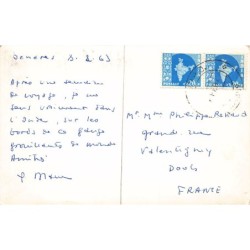 Benares 3.2.63
Après une semaine
de voyage, je me
sens vraiment dans
l'Inde, sur les
bords de ce Gange
grouillants de monde
Amitié
Mr. Mme Philippe
grande rue
Valentigney
Doubs
FRANCE